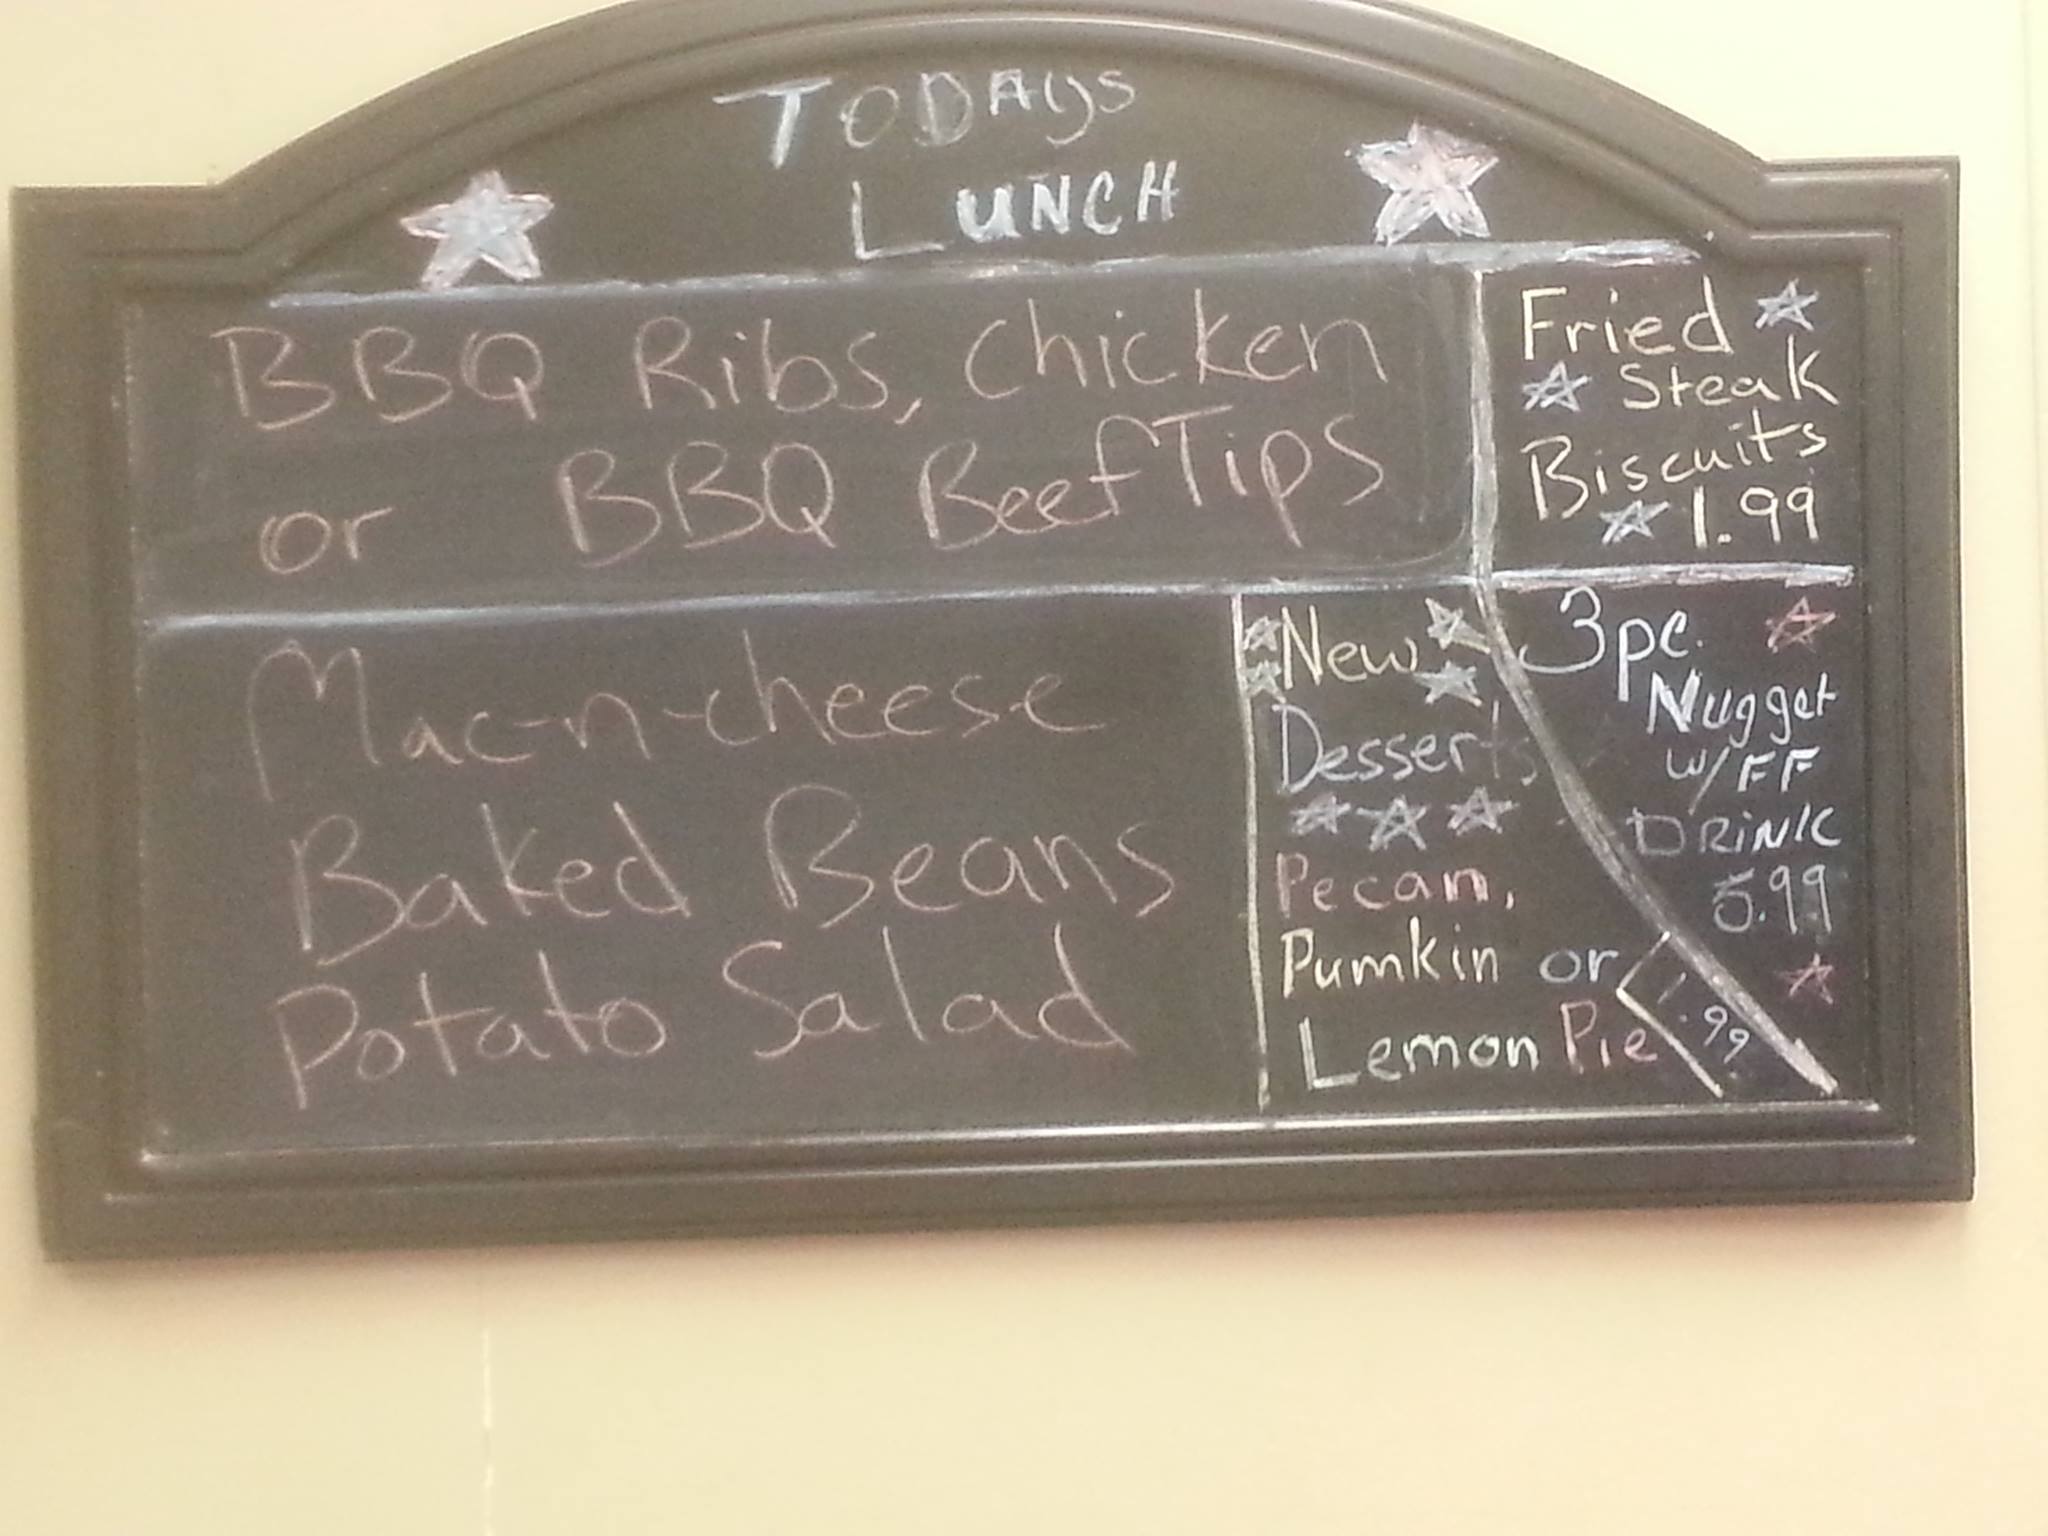 TODAYS
LUNCH
BBQ Ribs, Chicken
or BBQ Beef Tips
Mac-n-cheese
Baked Beans
Potato Salad
Fried
Steak
Biscuits
1.99
New
Desserts
Pecan,
Pumkin or
Lemon Pie
1.99
3pc.
Nugget
w/FF
DRINK
5.99